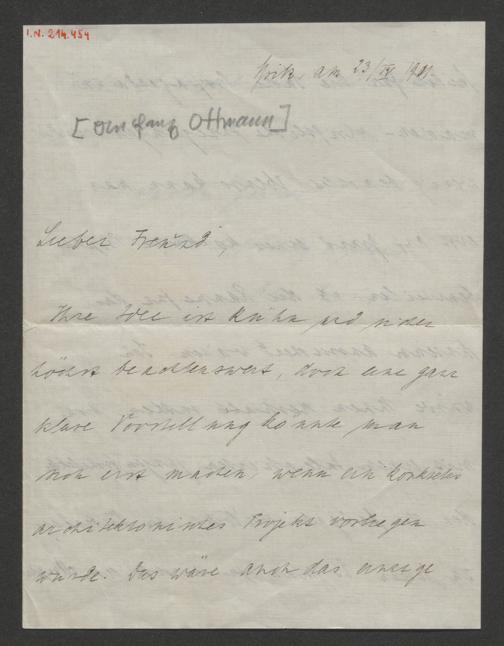 I.N. 214.454
am 23/IV 1921.
[an Franz Ottmann]
Lieber Freund,
Ihre Idee ist kühn und sicher
höchst beachtenswert, doch eine ganz
klare Vorstellung könnte man
sich erst machen, wenn ein konkretes
architektonisches Projekt vorliegen
würde. Das wäre auch das einzige